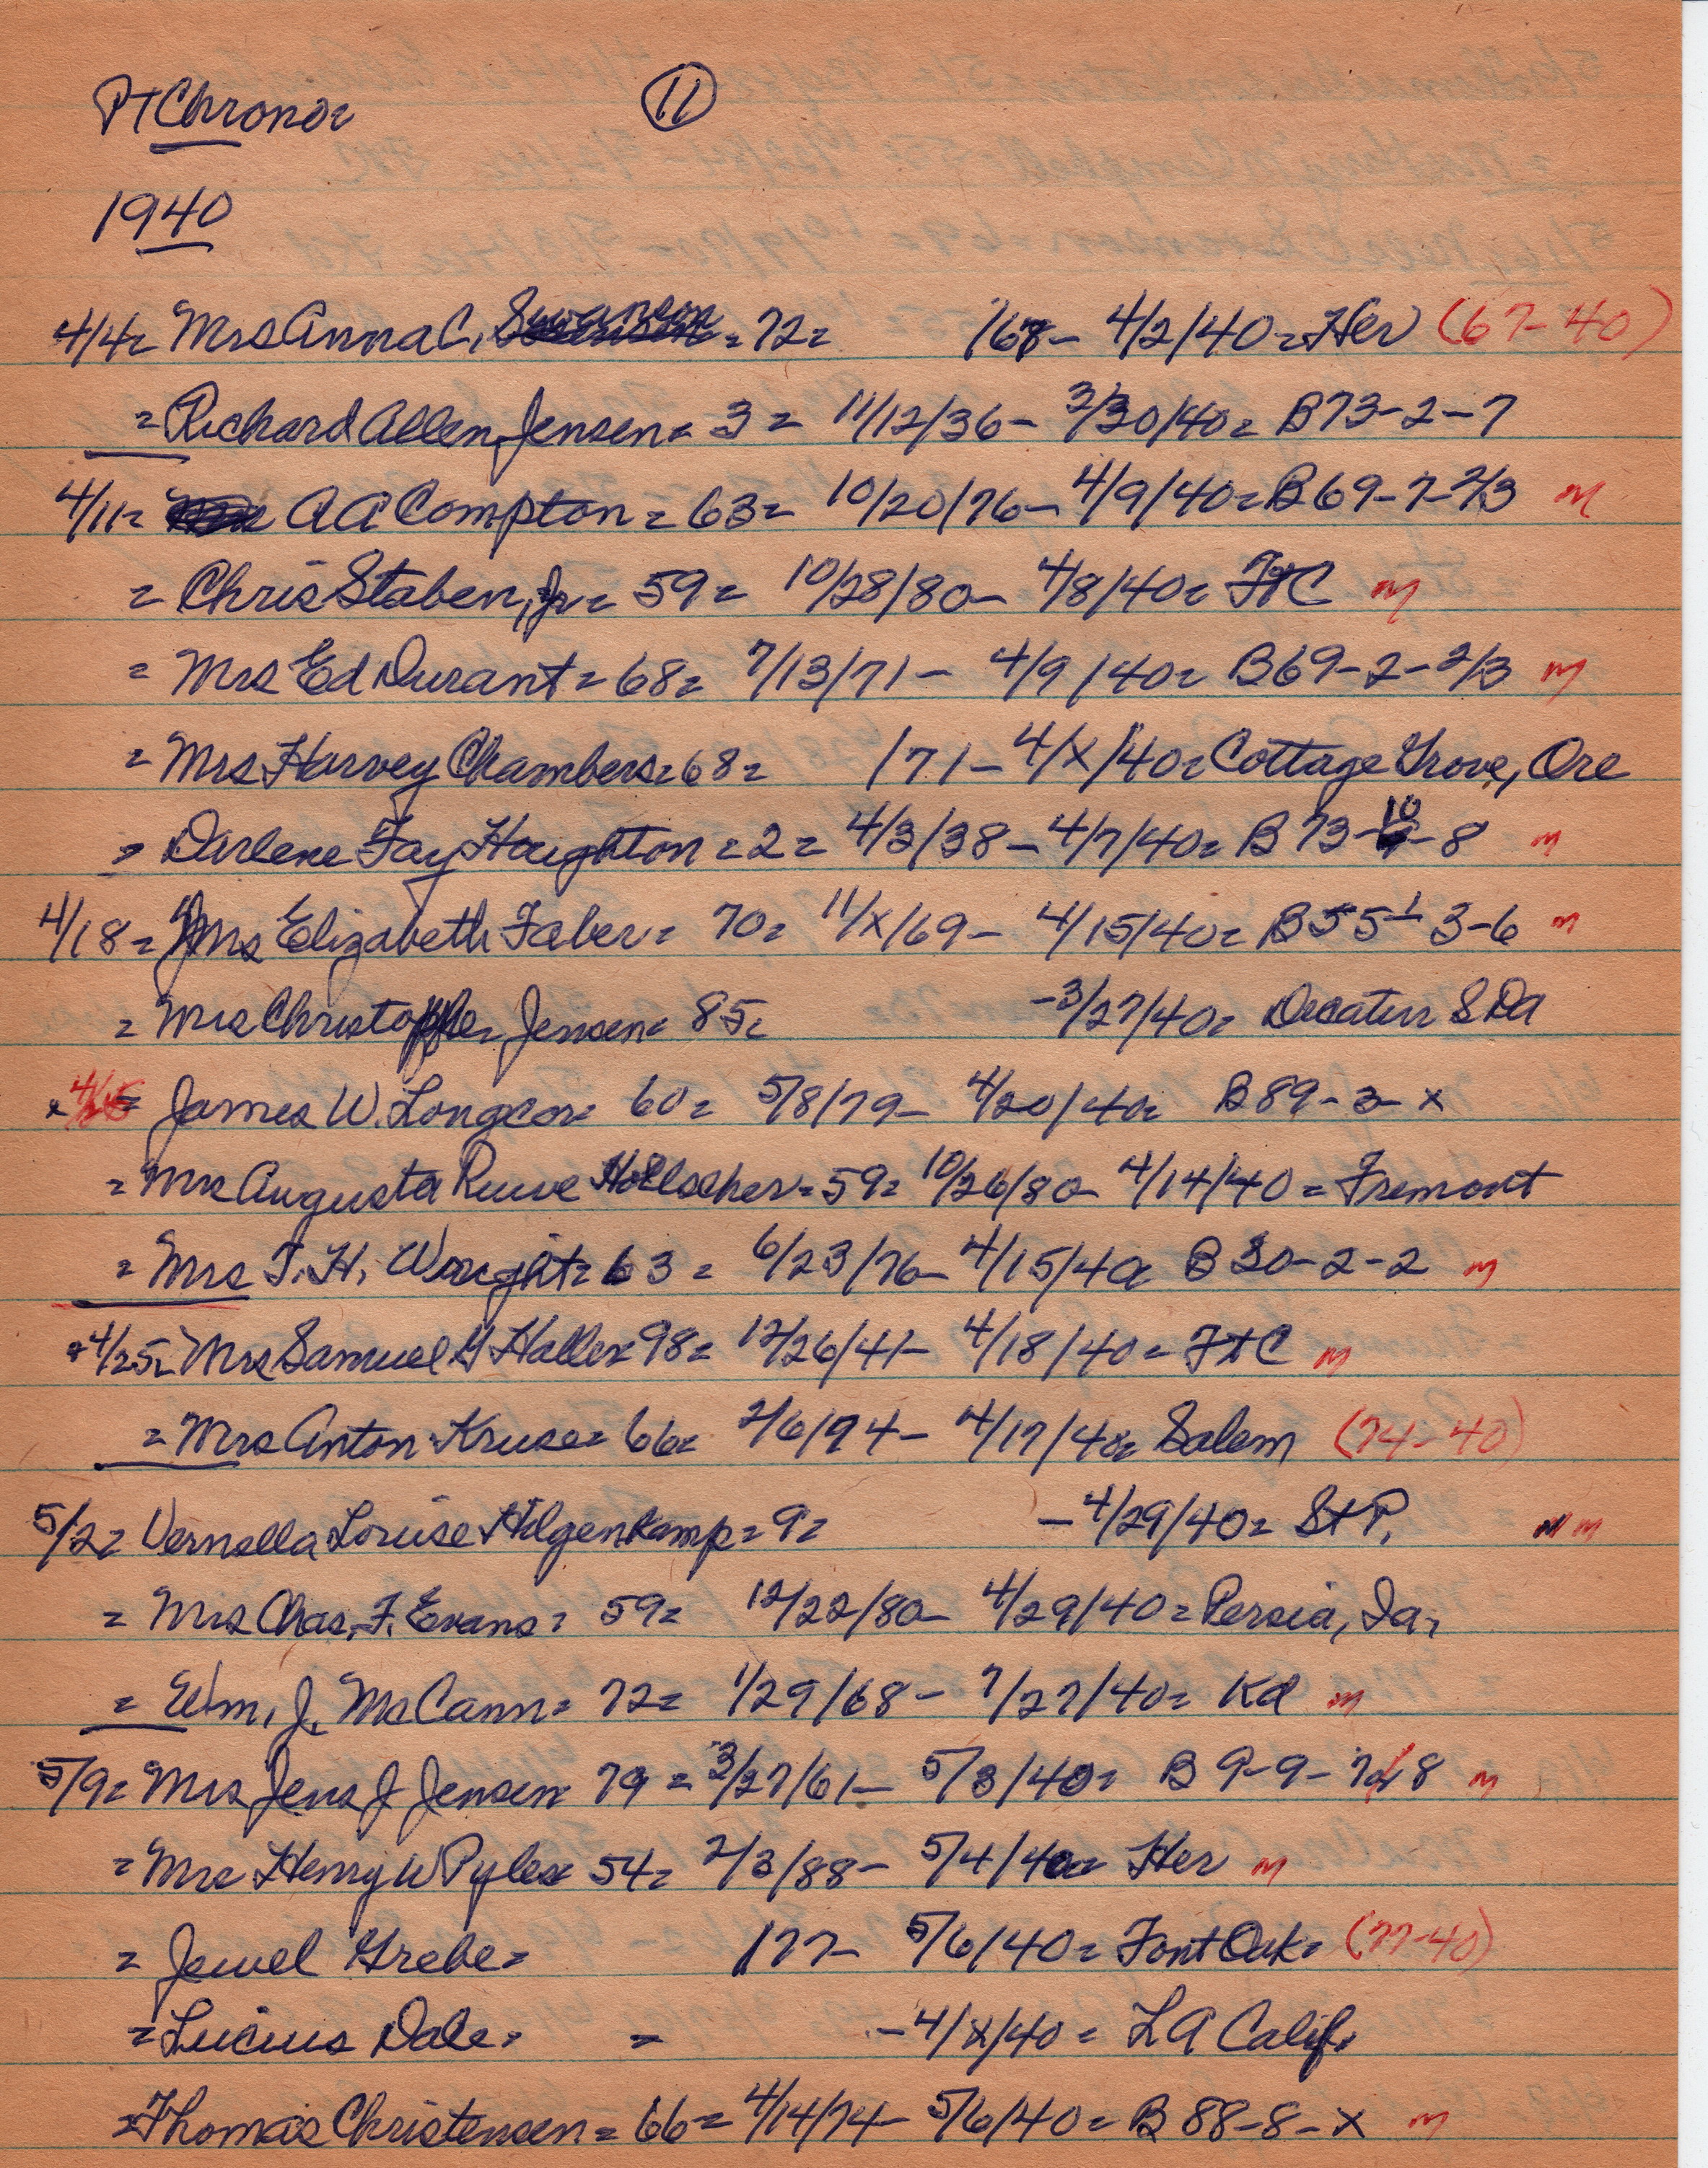 PTChrono= 11
1940
4/4= Mrs Anna C. Swanson = 72= /68- 4/2/40 = Her (67-40)
= Richard Allen Jensen = 3 = 11/12/36 - 3/30/40 = B73-2-7
4/11= AA Compton = 63= 10/20/76 - 4/9/40 = B69-7-2/3 m
= Chris Staben, Jr = 59 = 10/28/80 - 4/8/40 = FtC m
= Mrs Ed Durant = 68= 7/13/71 - 4/9/40 = B69-2-2/3 m
= Mrs Harvey Chambers = 68 = /71 - 4/x/40 = Cottage Grove, Ore
= Darlene Fay Houghton = 2 = 4/3/38 - 4/7/40 = B73-10-8 m
4/18 = Mrs Elizabeth Faber = 70= 11/x/69 - 4/15/40 = B55-3-6 m
= Mrs Christoffer Jensen = 85= -3/27/40 = Decatur S Da
x = James W. Longcor = 60 = 5/8/79 - 4/20/40 = B89-3-x
= Mrs Augusta Ruwe Hoelscher = 59= 10/26/80 - 4/14/40 = Fremont
= Mrs T. H. Wright = 63 = 6/23/76 - 4/15/40 = B30-2-2 m
*4/25= Mrs Samuel G Haller = 98= 12/26/41 - 4/18/40 = FtC m
= Mrs Anton Kruse = 66= 2/6/94 - 4/17/40 = Salem (74-40)
5/2= Vernella Louise Hilgenkamp = 9= - 4/29/40 = St P. m m
= Mrs Chas. F. Evans = 59= 12/22/80 - 4/29/40 = Persia, Ia.
= Wm. J. McCann = 72= 1/29/68 - 7/27/40 = Kd m
5/9= Mrs Jens J Jensen 79 = 3/27/61 - 5/3/40 = B 9-9-7 of 8 m
= Mrs Henry W Pyle = 54= 2/3/88 - 5/4/40 = Her m
= Jewel Grebe = /77 - 5/6/40 = Font Oak = (77-40)
= Lucius Dale = = - 4/x/40 = LA Calif.
= Thomas Christensen = 66 = 4/14/74 - 5/6/40 = B 88-8-x m